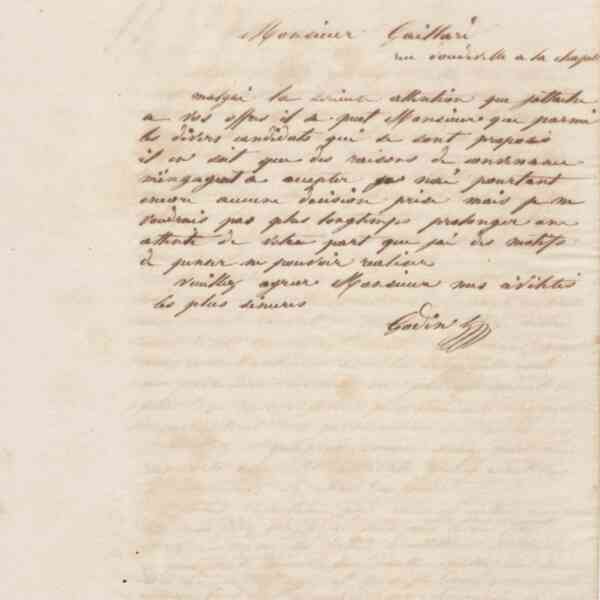 Monsieur Gaillard
rue a la chapel
malgré la sérieuse attention que j'attache
a vos offres il se peut Monsieur que parmi
les divers candidats qui se sont proposés
il en soit que des raisons de convenance
m'engagent a accepter je n'ai pourtant
encore aucune décision prise mais je ne
voudrais pas plus longtemps prolonger une
attente de votre part que j'ai des motifs
de penser ne pouvoir realiser
Veuillez agréer Monsieur mes civilités
les plus sincères
Godin